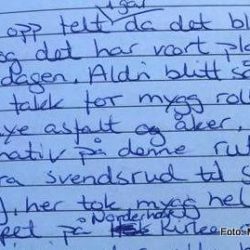 igår
opp telt da det bl
og det har vært pl
dagen. Aldri blitt s
takk for mygg rol
ye asfalt og åker,
nativ på denne ru
ra svendsrud til S
her tok mygg hel
Norderhov
pet på Kirke
Foto: N